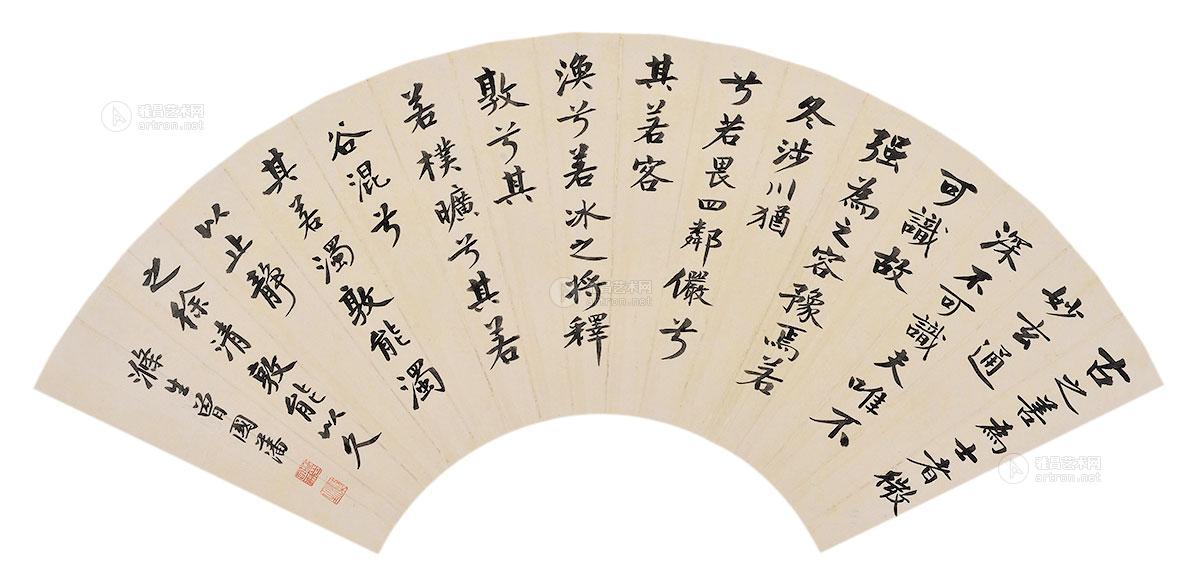 古之善為士者微
妙玄通
深不可識夫唯不
可識故
强為之容豫焉若
冬涉川猶
兮若畏四鄰儼兮
其若容
渙兮若冰之將釋
敦兮其
若樸曠兮其若
谷混兮
其若濁敦能濁
以止靜
之徐清敦能以久
滌生曾國藩
雅昌艺术网
artron.net
雅昌艺术网
artron.net
雅昌艺术网
artron.net
雅昌艺术网
artron.net